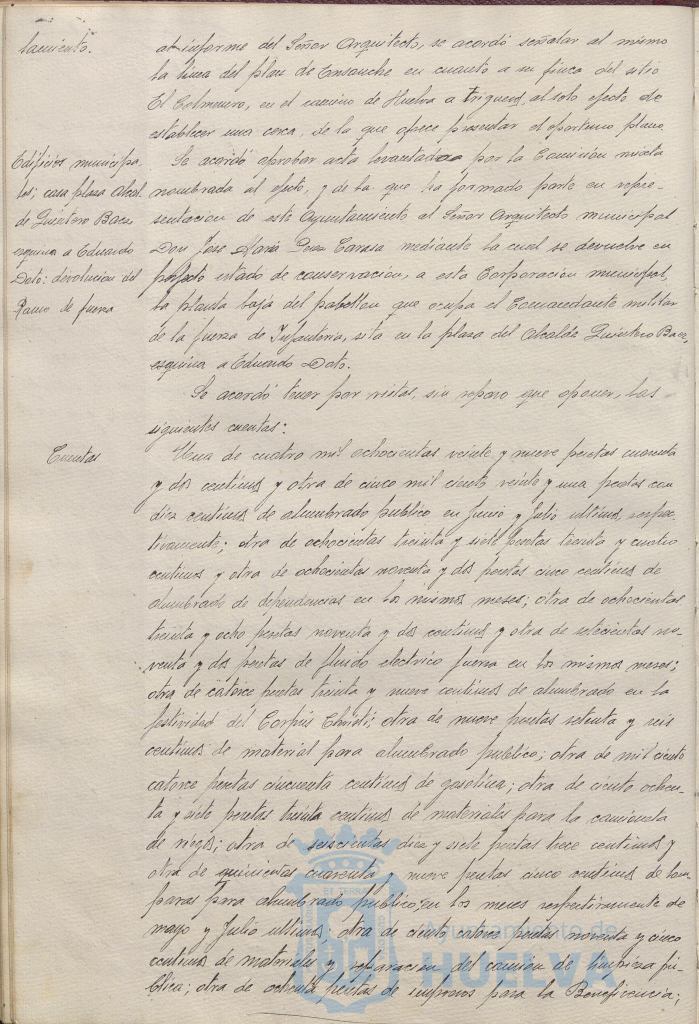 lamiento.
al informe del Señor Arquitecto, se acordó señalar al mismo
la linea del plan de Ensanche en cuanto a su finca del sitio
El Colmenero, en el camino de Huelva a Trigueros, al solo efecto de
establecer una cerca, de la que ofrece presentar el oportuno plano.
Edificios municipa-
les; casa plaza Alcal-
de Quintero Baez
esquina a Eduardo
Dato: devolucion del
Ramo de fuerza
Se acordó aprobar acta levantada por la Comision mixta
nombrada al efecto, y de la que ha formado parte en repre-
sentacion de este Ayuntamiento el Señor Arquitecto municipal
Don Jose Maria Perez Carasa mediante la cual se devuelve en
perfecto estado de conservacion, a esta Corporacion municipal,
la planta baja del pabellon que ocupa el Comandante militar
de la fuerza de Infanteria, sita en la plaza del Alcalde Quintero Baez,
esquina a Eduardo Dato.
Se acordó tener por vistas, sin reparo que oponer, las
siguientes cuentas:
Cuentas
Una de cuatro mil ochocientas veinte y nueve pesetas cuarenta
y dos centimos y otra de cinco mil ciento veinte y una pesetas con
diez centimos de alumbrado publico en Junio y Julio ultimos, respec-
tivamente; otra de ochocientas treinta y siete pesetas treinta y cuatro
centimos y otra de ochocientas noventa y dos pesetas cinco centimos de
alumbrado de dependencias en los mismos meses; otra de ochocientas
treinta y ocho pesetas noventa y dos centimos y otra de setecientas no-
venta y dos pesetas de fluido electrico fuerza en los mismos meses;
otra de catorce pesetas treinta y nueve centimos de alumbrado en la
festividad del Corpus Christi; otra de nueve pesetas setenta y seis
centimos de material para alumbrado publico; otra de mil ciento
catorce pesetas cincuenta centimos de gasolina; otra de ciento ochen-
ta y siete pesetas treinta centimos de materiales para la camioneta
de riegos; otra de seiscientas diez y siete pesetas trece centimos y
otra de quinientas cuarenta y nueve pesetas cinco centimos de lam-
paras para alumbrado publico, en los meses respectivamente de
mayo y Julio ultimos; otra de ciento catorce pesetas noventa y cinco
centimos de materiales y reparacion del camion de limpieza pú-
blica; otra de ochenta pesetas de impresos para la Beneficencia;
Ayuntamiento de
HUELVA